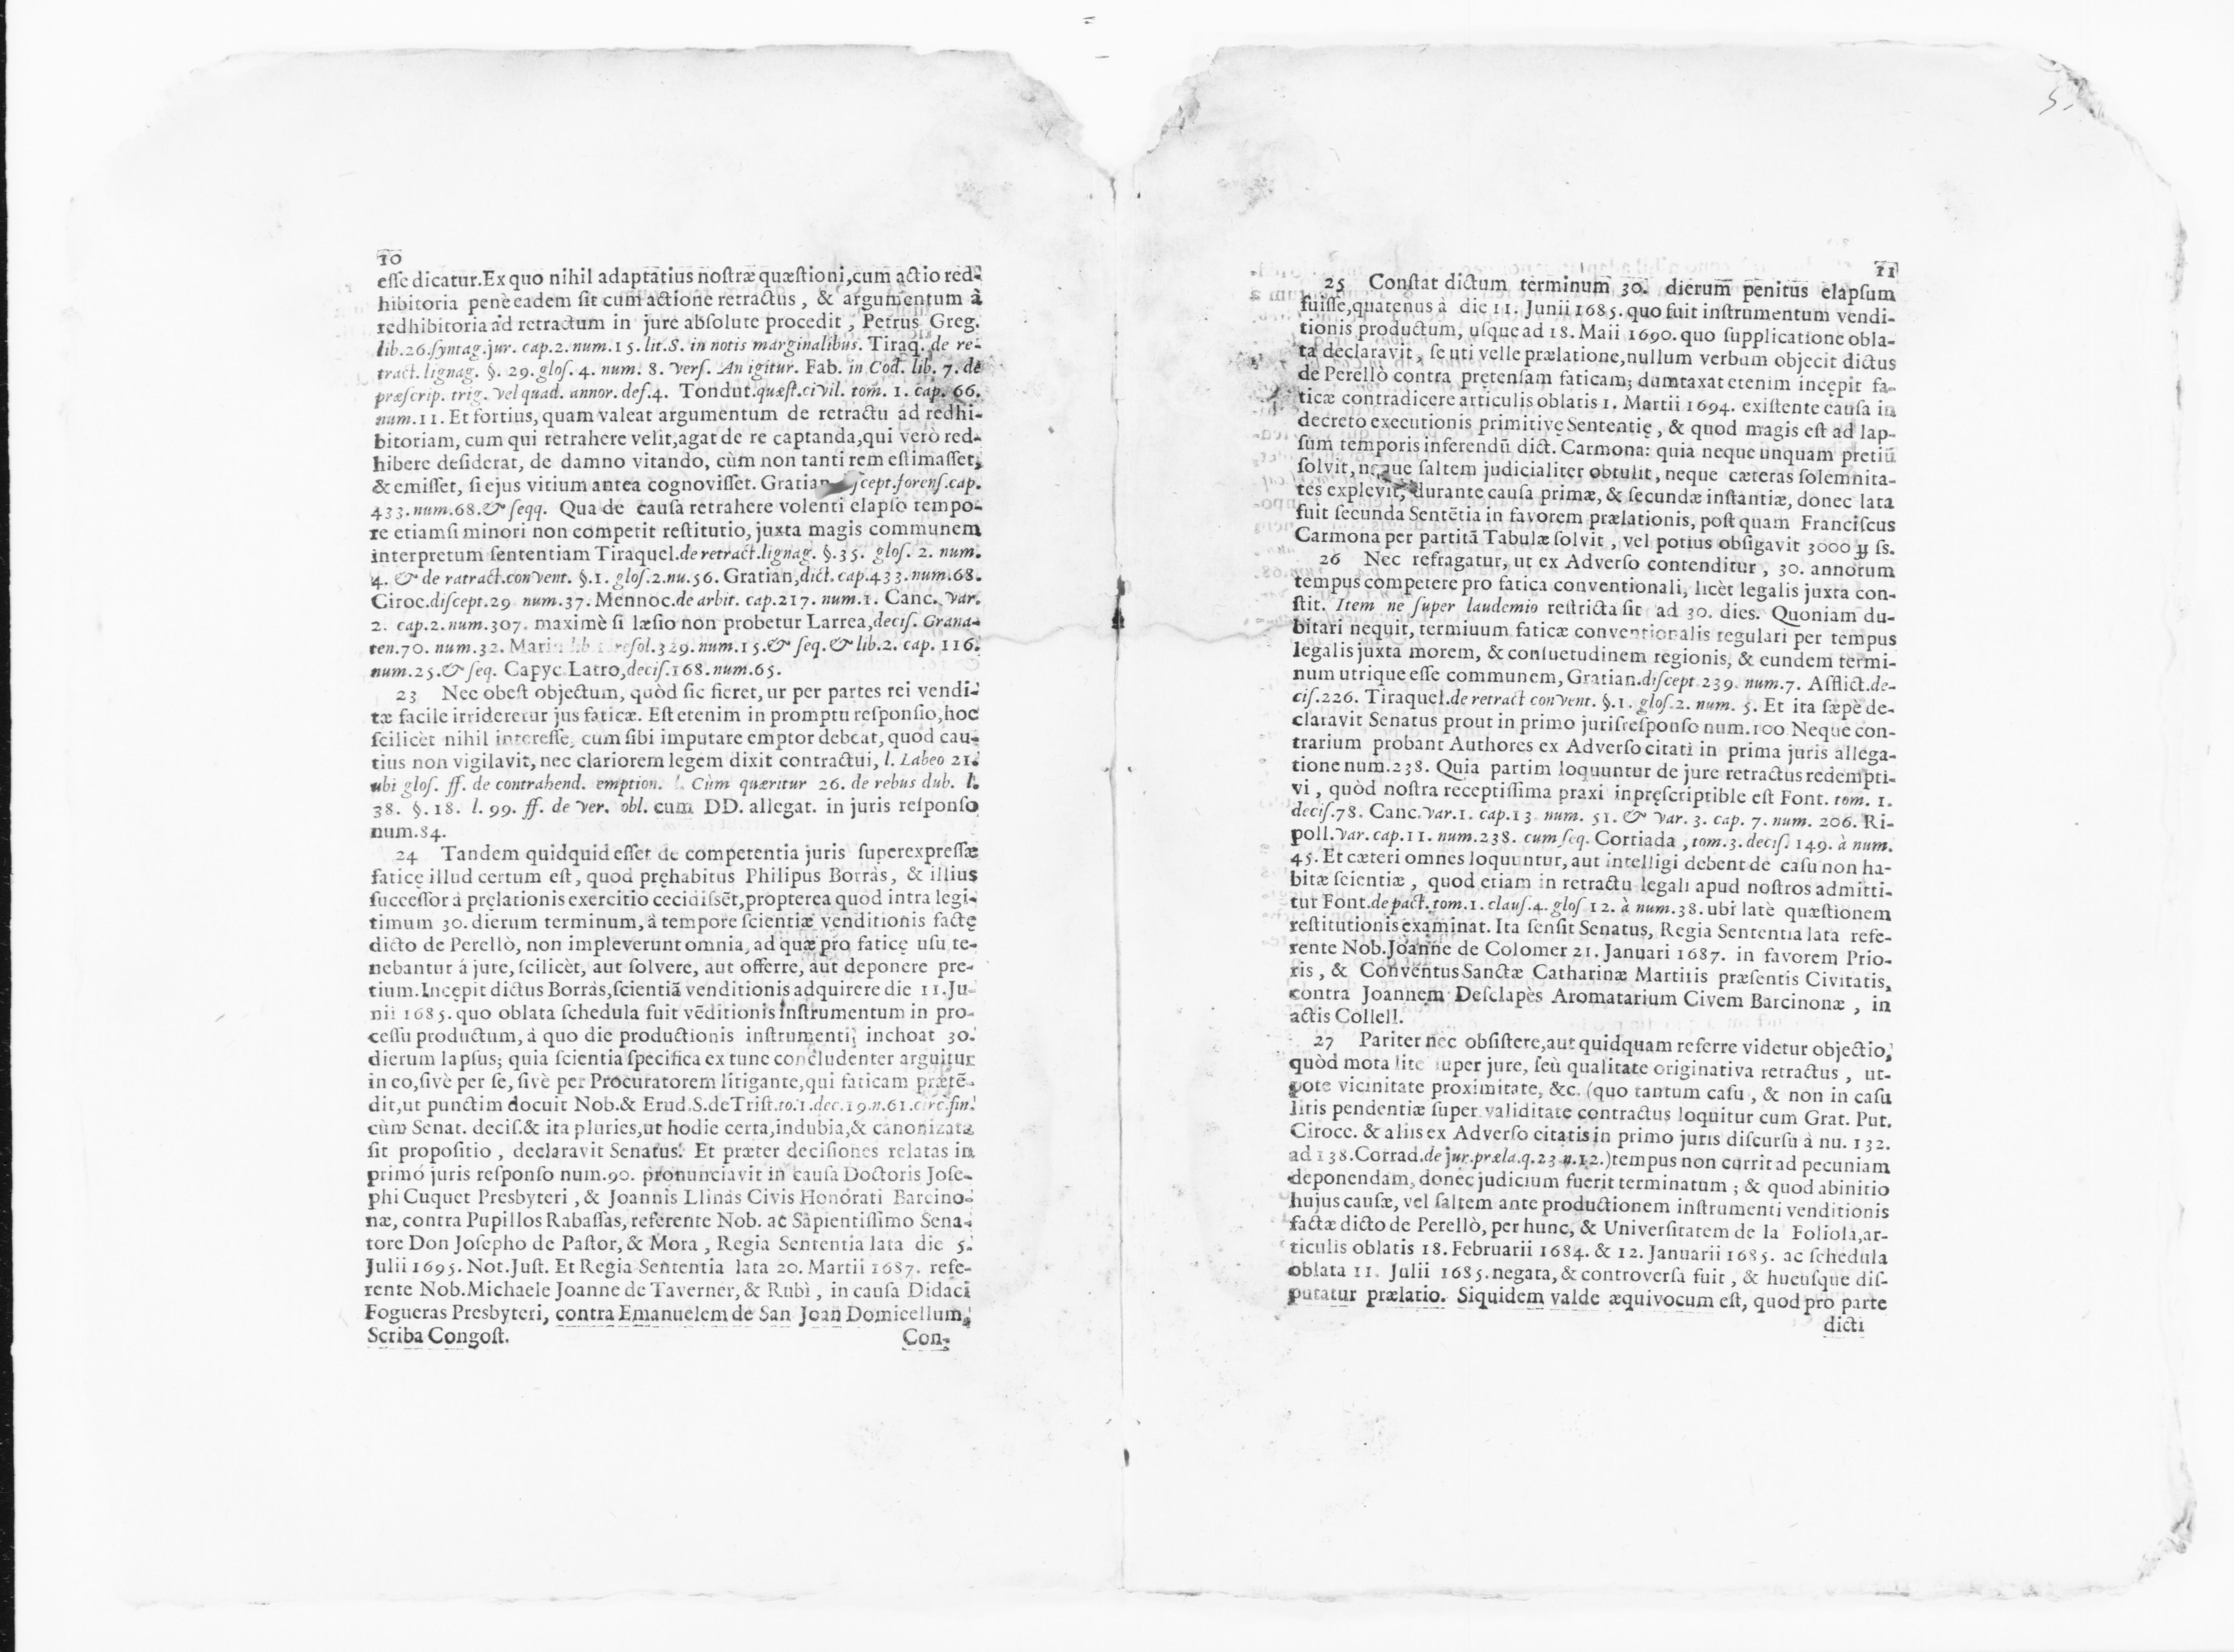 10
esse dicatur. Ex quo nihil adaptatius nostræ quæstioni, cum actio red-
hibitoria penè eadem sit cum actione retractus, & argumentum à
redhibitoria ad retractum in jure absolute procedit, Petrus Greg.
lib.26.syntag.jur. cap.2. num.15. lit.S. in notis marginalibus. Tiraq. de re-
tract. lignag. §. 29. glos. 4. num. 8. vers. An igitur. Fab. in Cod. lib. 7. de
præscrip. trig. vel quad. annor. def.4. Tondut.quæst.civil. tom. 1. cap. 66.
num.11. Et fortius, quam valeat argumentum de retractu ad redhi-
bitoriam, cum qui retrahere velit, agat de re captanda, qui verò red-
hibere desiderat, de damno vitando, cùm non tanti rem estimasset,
& emisset, si ejus vitium antea cognovisset. Gratian. scept.forens.cap.
433.num.68.& seqq. Qua de causa retrahere volenti elapso tempo-
re etiamsi minori non competit restitutio, juxta magis communem
interpretum sententiam Tiraquel.de retract.lignag. §.35. glos. 2. num.
4. & de ratract.convent. §.1. glos.2.nu.56. Gratian,dict. cap.433.num.68.
Ciroc.discept.29 num.37. Mennoc.de arbit. cap.217. num.1. Canc. var.
2. cap.2.num.307. maximè si læsio non probetur Larrea,decis. Grana-
ten.70. num.32. resol.329.num.15.& seq.& lib.2. cap. 116.
num.25.& seq. Capyc.Latro,decis.168.num.65.
23 Nec obest objectum, quòd sic fieret, ur per partes rei vendi-
tæ facile irrideretur jus faticæ. Est etenim in promptu responsio, hoc
scilicèt nihil interesse, cum sibi imputare emptor debeat, quod cau-
tius non vigilavit, nec clariorem legem dixit contractui, l. Labeo 21.
ubi glos. ff. de contrahend. emption. l. Cùm quæritur 26. de rebus dub. l.
38. §.18. l. 99. ff. de ver. obl. cum DD. allegat. in juris responso
num.84.
24 Tandem quidquid esset de competentia juris superexpressæ
faticę illud certum est, quod pręhabitus Philipus Borràs, & illius
successor à pręlationis exercitio cecidissēt, propterea quòd intra legi-
timum 30. dierum terminum, à tempore scientiæ venditionis factę
dicto de Perellò, non impleverunt omnia, ad quæ pro faticę usu te-
nebantur á jure, scilicèt, aut solvere, aut offerre, aut deponere pre-
tium. Incępit dictus Borràs, scientiā venditionis adquirere die 11. Ju-
nii 1685. quo oblata schedula fuit vēditionis instrumentum in pro-
cessu productum, à quo die productionis instrumenti, inchoat 30.
dierum lapsus; quia scientia specifica ex tunc concludenter arguitur
in eo, sivè per se, sivè per Procuratorem litigante, qui faticam prætē-
dit, ut punctim docuit Nob. & Erud.S.deTrist.to.1.dec.19.n.61.circ.fin.
cùm Senat. decis.& ita pluries, ut hodie certa, indubia, & canonizata
sit propositio, declaravit Senatus. Et præter decisiones relatas in
primó juris responso num.90. pronunciavit in causa Doctoris Jose-
phi Cuquet Presbyteri, & Joannis Llinàs Civis Honorati Barcino-
næ, contra Pupillos Rabassas, referente Nob. ac Sapientissimo Sena-
tore Don Josepho de Pastor, & Mora, Regia Sententia lata die 5.
Julii 1695. Not. Just. Et Regia Sententia lata 20. Martii 1687. refe-
rente Nob. Michaele Joanne de Taverner, & Rubì, in causa Didaci
Fogueras Presbyteri, contra Emanuelem de San Joan Domicellum,
Scriba Congost.
Con-
5.
11
25 Constat dictum terminum 30. dierum penitus elapsum
fuisse, quatenus à die 11. Junii 1685. quo fuit instrumentum vendi-
tionis productum, usque ad 18. Maii 1690. quo supplicatione obla-
ta declaravit, se uti velle prælatione, nullum verbum objecit dictus
de Perellò contra pretensam faticam; dumtaxat etenim incępit fa-
ticæ contradicere articulis oblatis 1. Martii 1694. existente causa in
decreto executionis primitivę Sententię, & quod magis est ad lap-
sum temporis inferendū dict. Carmona: quia neque unquam pretiū
solvit, neque saltem judicialiter obtulit, neque cæteras solemnita-
tes explevit, durante causa primæ, & secundæ instantiæ, donec lata
fuit secunda Sentētia in favorem prælationis, post quam Franciscus
Carmona per partitā Tabulæ solvit, vel potius obsigavit 3000 ll ss.
26 Nec refragatur, ut ex Adverso contenditur, 30. annorum
tempus competere pro fatica conventionali, licèt legalis juxta con-
stit. Item ne super laudemio restricta sit ad 30. dies. Quoniam du-
bitari nequit, termiuum faticæ conventionalis regulari per tempus
legalis juxta morem, & consuetudinem regionis, & eundem termi-
num utrique esse communem, Gratian.discept.239. num.7. Afflict.de-
cis.226. Tiraquel.de retract convent. §.1. glos.2. num. 5. Et ita sæpè de-
claravit Senatus prout in primo jurisresponso num.100 Neque con-
trarium probant Authores ex Adverso citati in prima juris allega-
tione num.238. Quia partim loquuntur de jure retractus redempti-
vi, quòd nostra receptissima praxi inpręscriptible est Font. tom. 1.
decis.78. Canc.var.1. cap.13 num. 51. & var. 3. cap. 7. num. 206. Ri-
poll.var. cap.11. num.238. cum seq. Cortiada, tom.3. decis. 149. à num.
45. Et cæteri omnes loquuntur, aut intelligi debent de casu non ha-
bitæ scientiæ, quod etiam in retractu legali apud nostros admitti-
tur Font.de pact. tom.1. claus.4. glos 12. à num.38. ubi latè quæstionem
restitutionis examinat. Ita sensit Senatus, Regia Sententia lata refe-
rente Nob. Joanne de Colomer 21. Januari 1687. in favorem Prio-
ris, & Conventus Sanctæ Catharinæ Martitis præsentis Civitatis,
contra Joannem Desclapès Aromatarium Civem Barcinonæ, in
actis Collell.
27 Pariter nec obsistere, aut quidquam referre videtur objectio,
quòd mota lite super jure, seù qualitate originativa retractus, ut-
pote vicinitate proximitate, &c. (quo tantum casu, & non in casu
litis pendentiæ super validitate contractus loquitur cum Grat. Put.
Cirocc. & aliis ex Adverso citatis in primo juris discursu à nu. 132.
ad 138. Corrad.de jur.præla.q.23 n.12.) tempus non currit ad pecuniam
deponendam, donec judicium fuerit terminatum; & quod abinitio
hujus causæ, vel saltem ante productionem instrumenti venditionis
factæ dicto de Perellò, per hunc, & Universitatem de la Foliola, ar-
ticulis oblatis 18. Februarii 1684. & 12. Januarii 1685. ac schedula
oblata 11. Julii 1685. negata, & controversa fuit, & hucusque dis-
putatur prælatio. Siquidem valde æquivocum est, quod pro parte
dicti